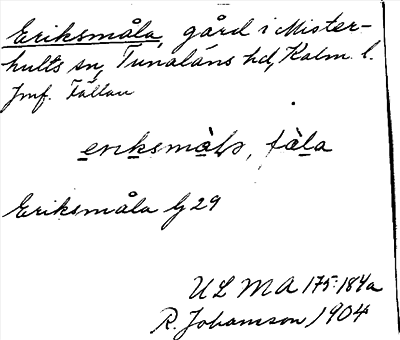 Eriksmåla, gård i Mister-
hults sn, Tunaläns hd, Kalm. l.
Jmf. Fällan
eriksmåla, fàla
Eriksmåla G 29
ULMA 175:184a
R. Johansson 1904